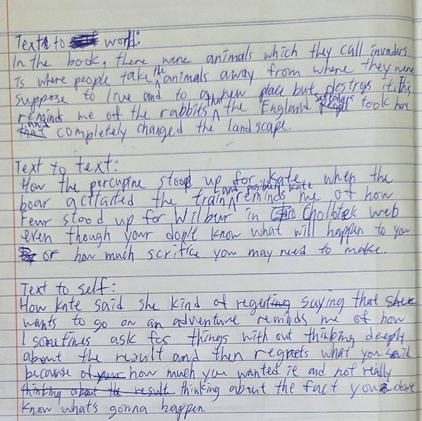 Text to world:
In the book, there were animals which they call invaders
Is where people take the animals away from where they were
suppose to live and to a new place but destroys it. This
remind me of the rabbits the England took here
completely changed the landscape.
Text to text:
How the porcupine stood up for Kate when the
boar the train reminds me of how
Fern stood up for Wilbur in web
even though your don't know what will happen to you
or how much scrifice you may need to make.
Text to self:
How Kate said she kind of regreting saying that she
wants to go on an adventure reminds me of how
I sometimes ask for things with out thinking deeply
about the result and then regrets what you said
because of how much you wanted it and not really
thinking about the result thinking about the fact you don't
know what's gonna happen.